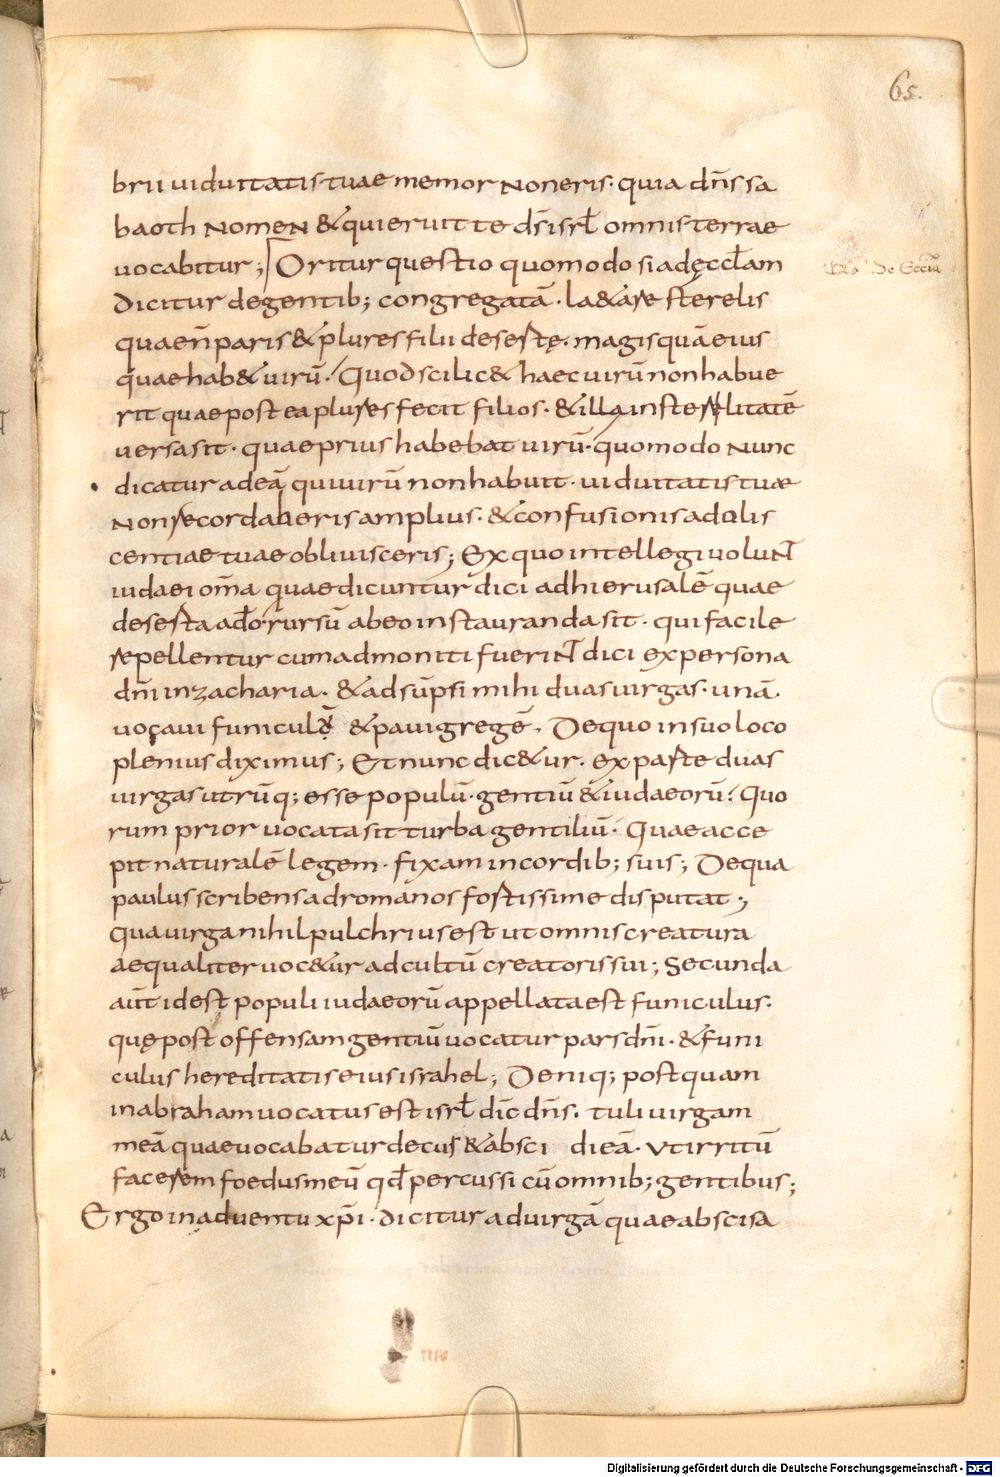 65.
brii uiduitatis tuae memor Non eris· quia dn̄s sa
baoth NomeN & qui eruit te ds̄ isrł omnis terrae
uocabitur; Oritur questio quomodo si ad ęccłam
dicitur de gentib; congregatā· la&are sterelis
quae n̄ paris & plures filii desestę· magis quā eius
quae hab& uirū· Quod scilic& haec uirū non habue
rit quae postea plures fecit filios· & illa in sterelitatē
uersa sit· quae prius habebat uirū· quomodo Nunc
dicatur ad eā qui uirū non habuit· uiduitatis tuae
Non recordaueris amplius· & confusionis adolis
centiae tuae obliuisceris; Ex quo intellegi uoluNT
iudaei om̄a quae dicuntur dici ad hierusalē quae
deserta a dō rursū ab eo instauranda sit· qui facile
repellentur cum admoniti fueriNT dici ex persona
dn̄i in zacharia· & adsūpsi mihi duas uirgas· unā
uocaui funiculū & paui gregē· De quo in suo loco
plenius diximus; Et nunc dic&ur· ex parte duas
uirgas utrūq; esse populū· gentiū & iudaeorū· Quo
rum prior uocata sit turba gentiliū· Quae acce
pit naturalē legem· fixam in cordib; suis; De qua
paulus scribens ad romanos fortissime disputat;
qua uirga nihil pulchrius est ut omnis creatura
aequaliter uoc&ur ad cultū creatoris sui; Secunda
aūt id est populi iudaeorū appellata est funiculus·
quę post offensam gentiū uocatur pars dn̄i· & funi
culus hereditatis eius israhel; Deniq; postquam
in abraham uocatus est isrł dic̄ dn̄s· tuli uirgam
meā quae uocabatur decus & absci di eā· Vt irritū
facerem foedus meū qđ percussi cū omnib; gentibus;
Ergo in aduentu xp̄i· dicitur ad uirgā quae abscisa
Digitalisierung gefördert durch die Deutsche Forschungsgemeinschaft - DFG